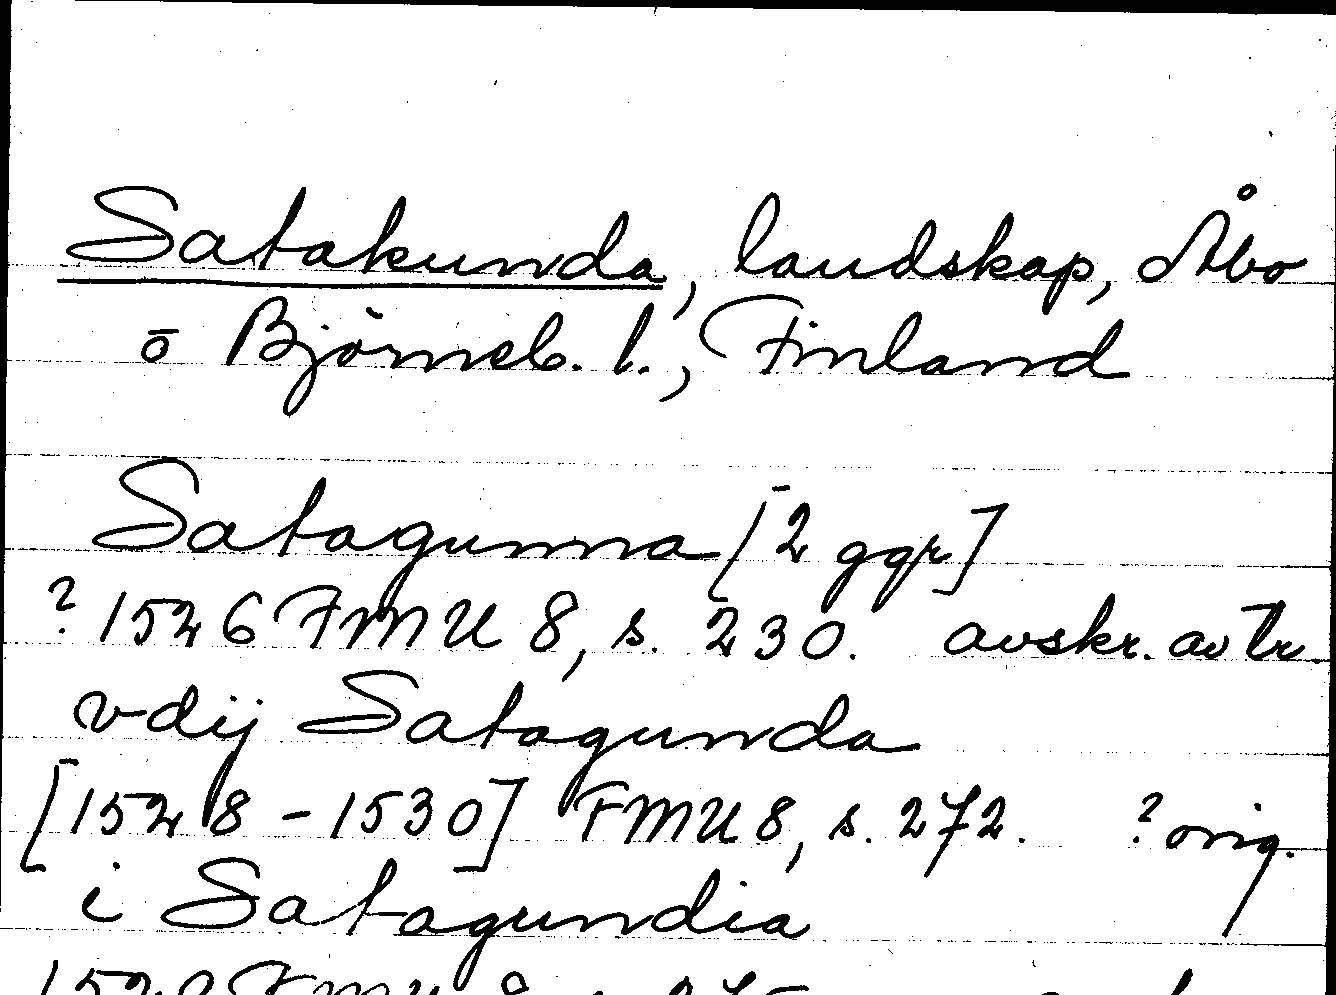 Satakunda, landskap, Åbo
o Björneb. l., Finland
Satagunna [2 ggr]
? 1526 FMU 8, s. 230. avskr. av tr.
vdij Satagunda
[1528-1530] FMU 8, s. 272. ? orig.
i Satagundia